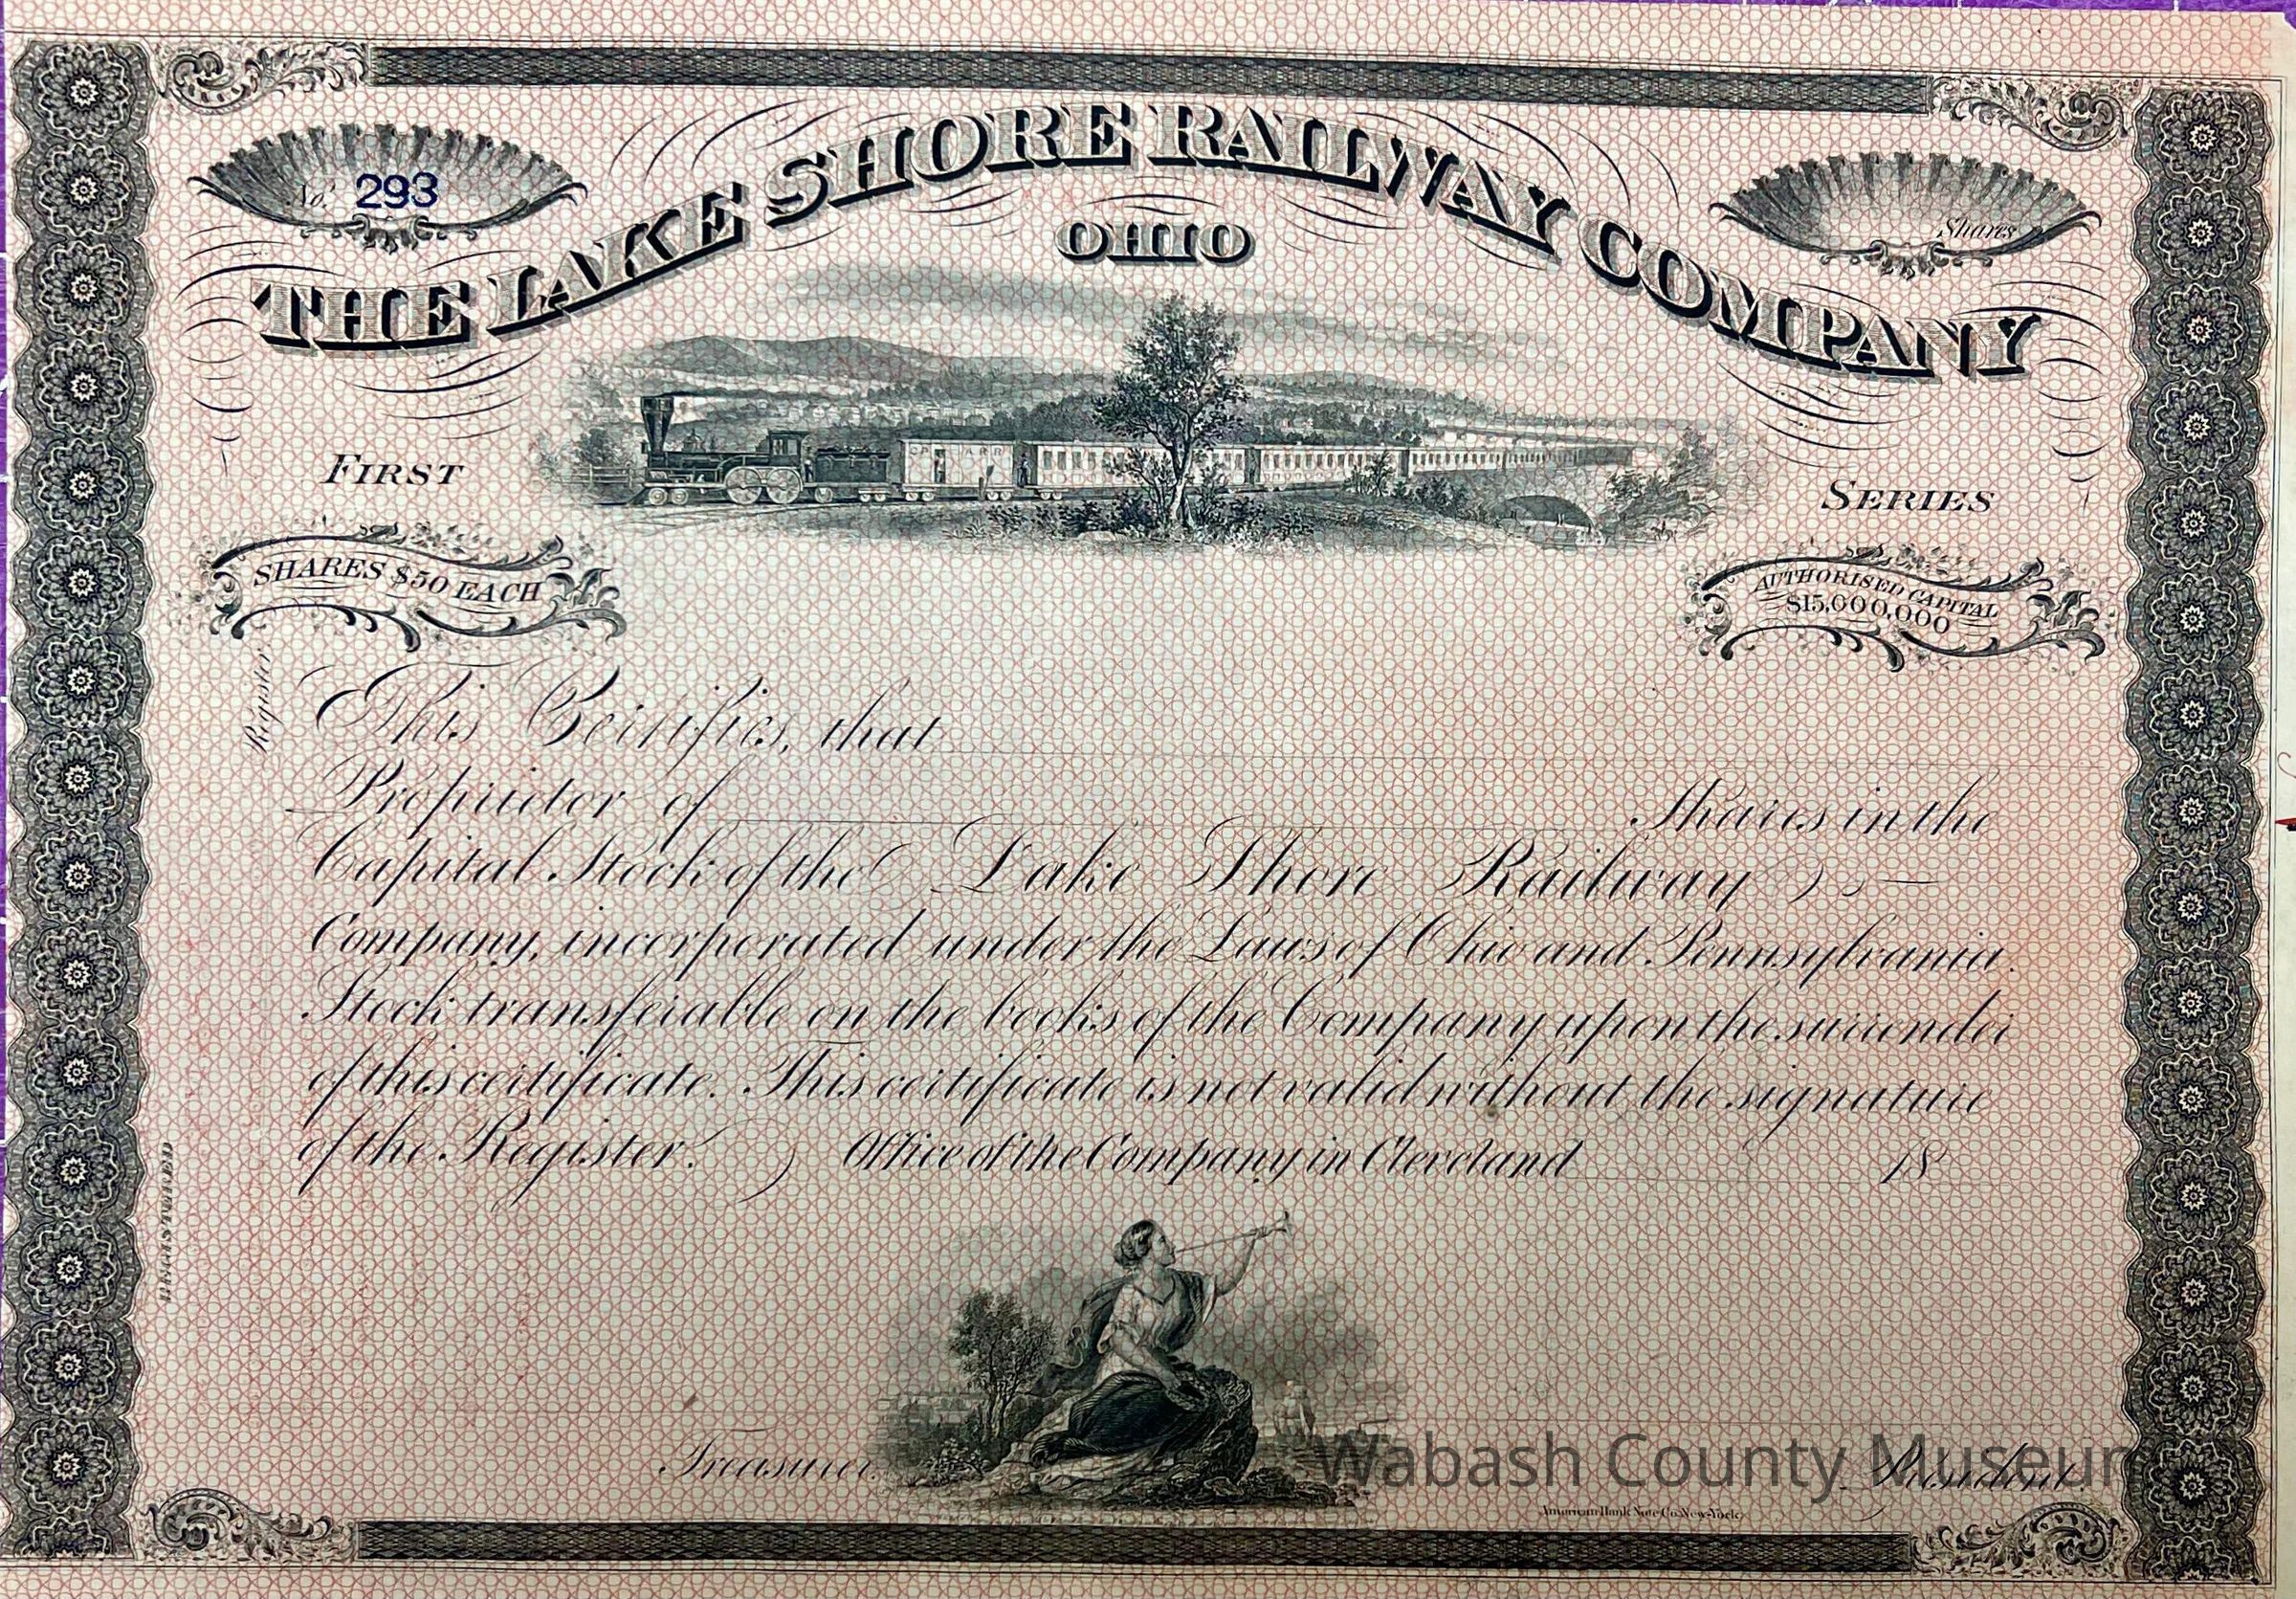 No. 293
Shares
THE LAKE SHORE RAILWAY COMPANY
OHIO
FIRST
SERIES
SHARES $50 EACH
AUTHORISED CAPITAL
$15,000,000
Register
This Certifies, that
Proprietor of Shares in the
Capital Stock of the Lake Shore Railway
Company, incorporated under the Laws of Ohio and Pennsylvania.
Stock transferable on the books of the Company upon the surrender
of this certificate. This certificate is not valid without the signature
of the Register. Office of the Company in Cleveland 18
Treasurer.
President.
Wabash County Museum
American Bank Note Co. New-York